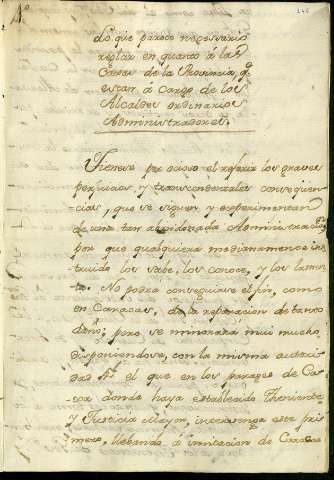 Lo que parece necesario
reglar en quanto á las
Casas de la Provincia, q.e
estan á cargo de los
Alcaldes ordinarios
Administradores.
Tienese por ocioso el referir los graves
perjuicios, y transcendentales consequen
cias, que se siguen y experimentan
de una tan abandonada Administracion
por que qualquiera medianamente ins
truido los sabe, los conoce, y los lamen
ta. No podra conseguirse el fin, como
en Caracas, de la reparacion de tanto
daño; pero se minorará mui mucho
disponiendose, con la misma autori
dad el que en los parages de Ca
sa donde haya establecido Theniente
y Justicia Mayor, intervenga este pri
mero, llebando á imitacion de Caracas